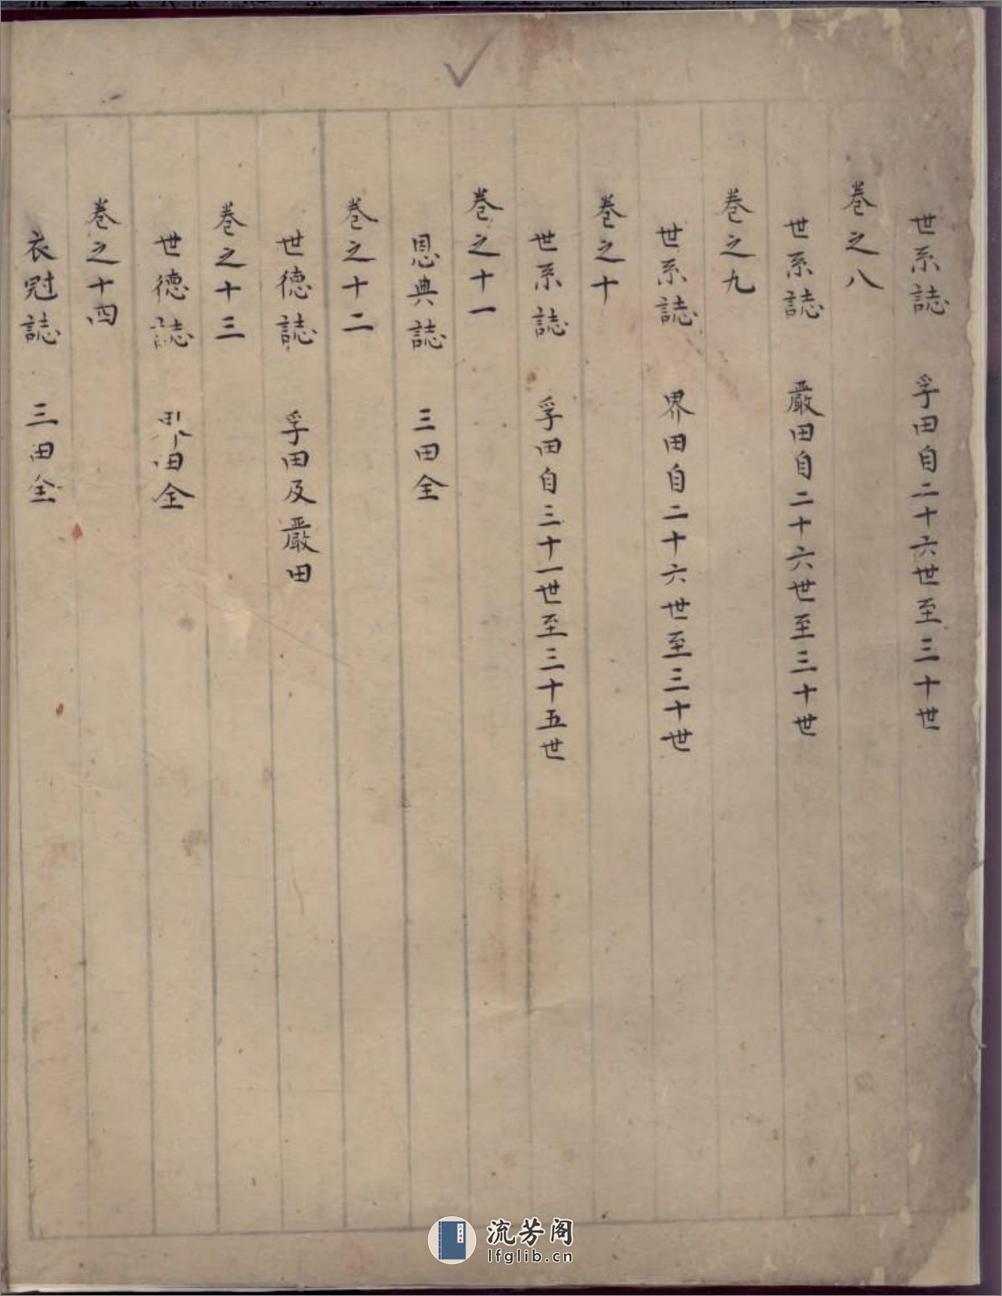 世系誌 孚田自二十六世至三十世
巻之八
世系誌 嚴田自二十六世至三十世
巻之九
世系誌 界田自二十六世至三十世
巻之十
世系誌 孚田自三十一世至三十五世
巻之十一
恩典誌 三田全
巻之十二
世德誌 孚田及嚴田
巻之十三
世德誌 界田全
巻之十四
衣冠誌 三田全
流芳阁
lfglib.cn